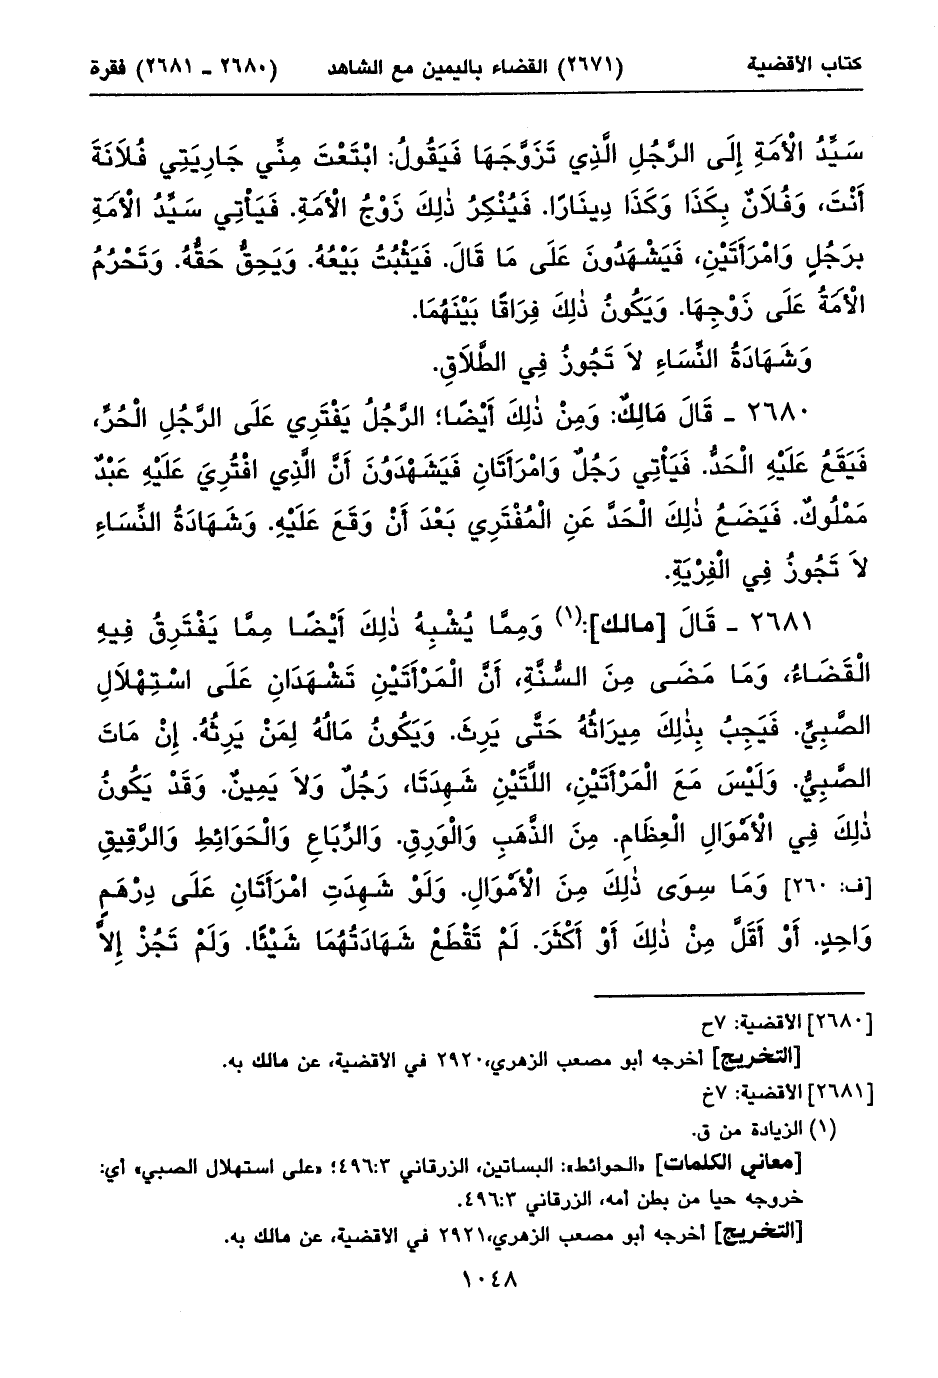 كتاب الأقضية (٢٦٧١) القضاء باليمين مع الشاهد (٢٦٨٠ ـ ٢٦٨١) فقرة
سَيِّدُ الْأَمَةِ إِلَى الرَّجُلِ الَّذِي تَزَوَّجَهَا فَيَقُولُ: ابْتَعْتَ مِنِّي جَارِيَتِي فُلَانَةَ
أَنْتَ، وَفُلَانٌ بِكَذَا وَكَذَا دِينَارًا. فَيُنْكِرُ ذٰلِكَ زَوْجُ الْأَمَةِ. فَيَأْتِي سَيِّدُ الْأَمَةِ
بِرَجُلٍ وَامْرَأَتَيْنِ، فَيَشْهَدُونَ عَلَى مَا قَالَ. فَيَثْبُتُ بَيْعُهُ. وَيَحِقُّ حَقُّهُ. وَتَحْرُمُ
الْأَمَةُ عَلَى زَوْجِهَا. وَيَكُونُ ذٰلِكَ فِرَاقًا بَيْنَهُمَا.
وَشَهَادَةُ النِّسَاءِ لاَ تَجُوزُ فِي الطَّلَاقِ.
٢٦٨٠ ـ قَالَ مَالِكٌ: وَمِنْ ذٰلِكَ أَيْضًا؛ الرَّجُلُ يَفْتَرِي عَلَى الرَّجُلِ الْحُرِّ،
فَيَقَعُ عَلَيْهِ الْحَدُّ. فَيَأْتِي رَجُلٌ وَامْرَأَتَانِ فَيَشْهَدُونَ أَنَّ الَّذِي افْتُرِيَ عَلَيْهِ عَبْدٌ
مَمْلُوكٌ. فَيَضَعُ ذٰلِكَ الْحَدَّ عَنِ الْمُفْتَرِي بَعْدَ أَنْ وَقَعَ عَلَيْهِ. وَشَهَادَةُ النِّسَاءِ
لاَ تَجُوزُ فِي الْفِرْيَةِ.
٢٦٨١ ـ قَالَ [مالك]:(١) وَمِمَّا يُشْبِهُ ذٰلِكَ أَيْضًا مِمَّا يَفْتَرِقُ فِيهِ
الْقَضَاءُ، وَمَا مَضَى مِنَ السُّنَّةِ، أَنَّ الْمَرْأَتَيْنِ تَشْهَدَانِ عَلَى اسْتِهْلَالِ
الصَّبِيِّ. فَيَجِبُ بِذٰلِكَ مِيرَاثُهُ حَتَّى يَرِثَ. وَيَكُونُ مَالُهُ لِمَنْ يَرِثُهُ. إِنْ مَاتَ
الصَّبِيُّ. وَلَيْسَ مَعَ الْمَرْأَتَيْنِ، اللَّتَيْنِ شَهِدَتَا، رَجُلٌ وَلاَ يَمِينٌ. وَقَدْ يَكُونُ
ذٰلِكَ فِي الْأَمْوَالِ الْعِظَامِ. مِنَ الذَّهَبِ وَالْوَرِقِ. وَالرِّبَاعِ وَالْحَوَائِطِ وَالرَّقِيقِ
[ف: ٢٦٠] وَمَا سِوَى ذٰلِكَ مِنَ الْأَمْوَالِ. وَلَوْ شَهِدَتِ امْرَأَتَانِ عَلَى دِرْهَمٍ
وَاحِدٍ. أَوْ أَقَلَّ مِنْ ذٰلِكَ أَوْ أَكْثَرَ. لَمْ تَقْطَعْ شَهَادَتُهُمَا شَيْئًا. وَلَمْ تَجُزْ إِلاَّ
[٢٦٨٠] الأقضية: ٧ح
[التخريج] أخرجه أبو مصعب الزهري، ٢٩٢٠ في الأقضية، عن مالك به.
[٢٦٨١] الأقضية: ٧خ
(١) الزيادة من ق.
[معاني الكلمات] «الحوائط»: البساتين، الزرقاني ٤٩٦:٣؛ «على استهلال الصبي» أي:
خروجه حيا من بطن أمه، الزرقاني ٤٩٦:٣.
[التخريج] أخرجه أبو مصعب الزهري، ٢٩٢١ في الأقضية، عن مالك به.
١٠٤٨